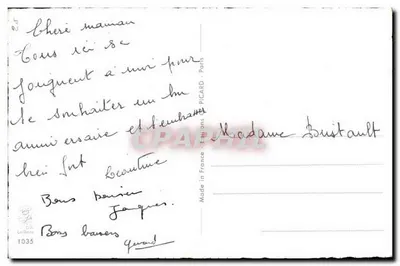 Chère maman
Tous ici se
joignent à moi pour
te souhaiter un bon
anniversaire et t'embrasser
bien fort
Bons baisers
Jacques.
Bons baisers
Gérard
Madame
Made in France
PICARD Paris
1035
CPAPHIL